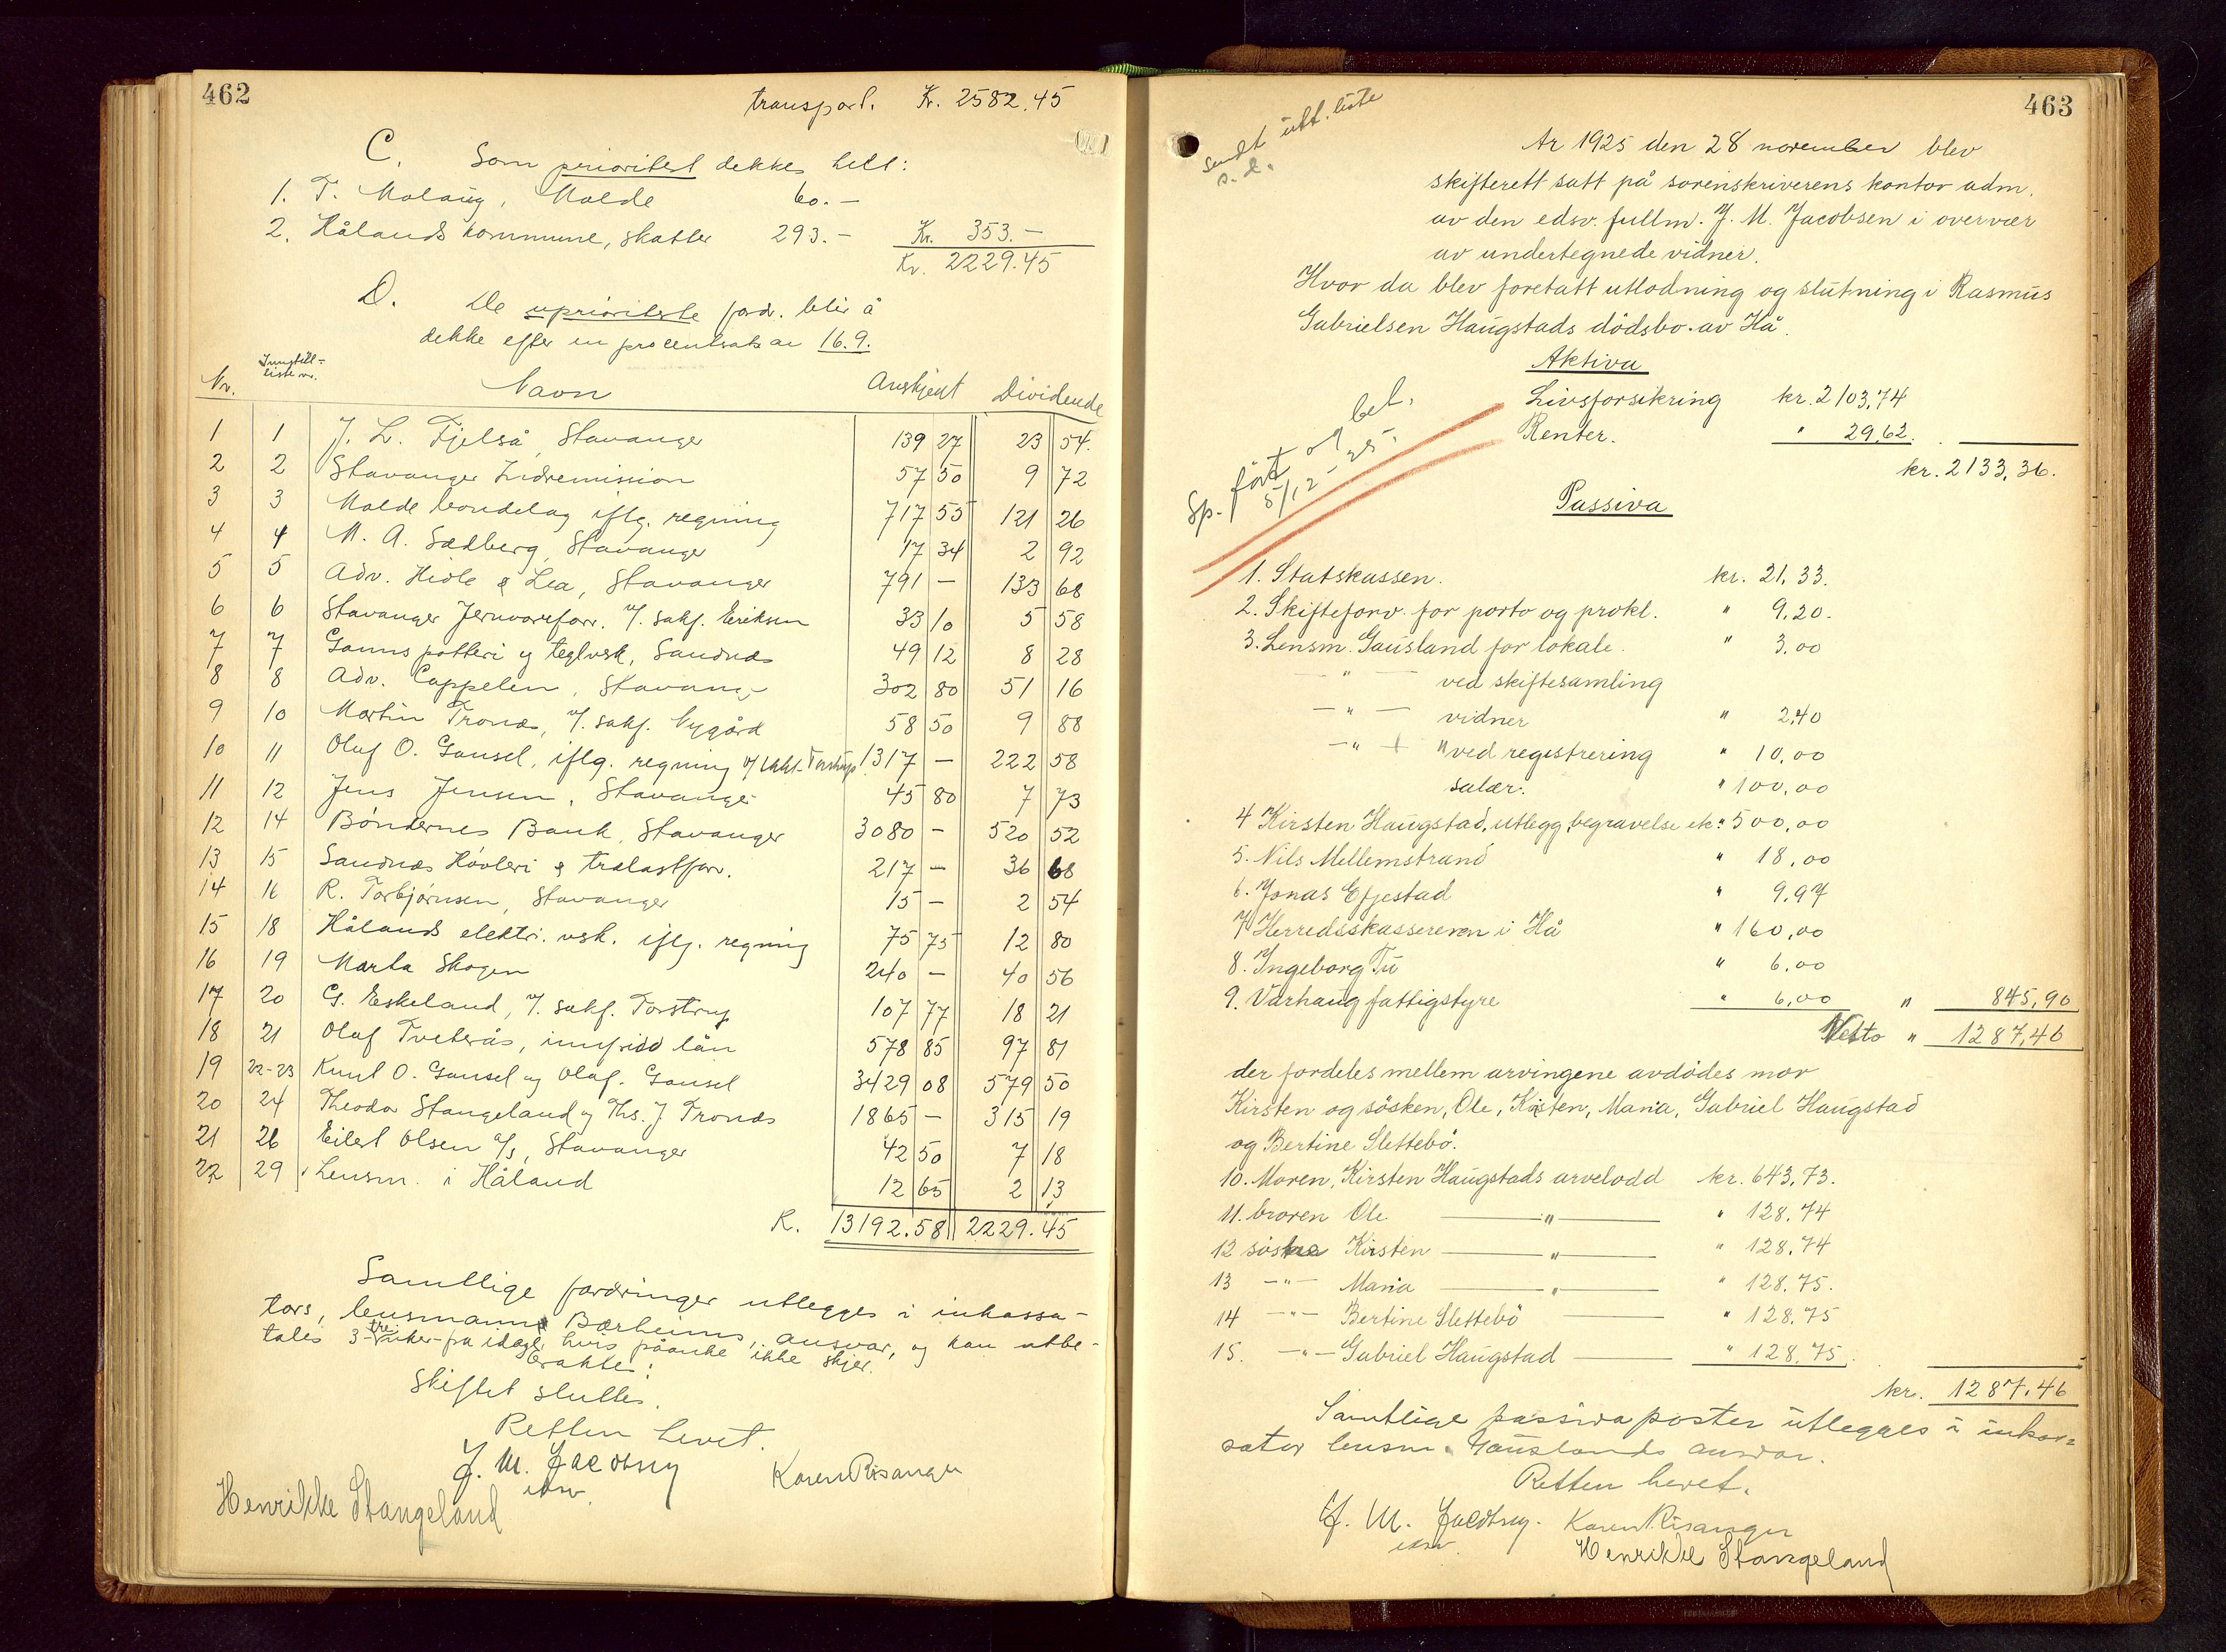 462
transport. Kr. 2582.45
C. Som prioritert dekkes helt:
1. T. Malaug, Malde 60.-
2. Hålands kommune, skatter 293.- Kr. 353.-
Kr. 2229.45
D. De uprioriterte ford. blir å
dekke efter en procentsats av 16.9.
Nr. Innstill-liste nr. Navn Anerkjent Dividende
1 1 J. L. Fjelså, Stavanger 139 27 23 54.
2 2 Stavanger Indremission 57 50 9 72
3 3 Malde bondelag iflg. regning 717 55 121 26
4 4 M. A. Sædberg, Stavanger 17 34 2 92
5 5 Adv. Hidle & Lea, Stavanger 791 – 133 68
6 6 Stavanger Jernvareforr. v/ sakf. Eriksen 33 10 5 58
7 7 Ganns potteri og teglvsk, Sandnæs 49 12 8 28
8 8 Adv. Cappelen, Stavang. 302 80 51 16
9 10 Martin Tronæs, v/ sakf. Nygård 58 50 9 88
10 11 Oluf O. Gausel, iflg. regning v/ sakf. Torstrup 1317 – 222 58
11 12 Jens Jensen, Stavanger 45 80 7 73
12 14 Bøndernes Bank, Stavanger 3080 – 520 52
13 15 Sandnæs Høvleri & trælastforr. 217 – 36 68
14 16 R. Torbjørnsen, Stavanger 15 – 2 54
15 18 Hålands elektr. vsk. iflg. regning 75 75 12 80
16 19 Marta Skogen 240 – 40 56
17 20 G. Eskeland, v/ sakf. Torstrup 107 77 18 21
18 21 Olaf Tveterås, innfridd lån 578 85 97 81
19 22-23 Knut O. Gausel og Oluf. Gausel 3429 08 579 50
20 24 Theodor Stangeland og Ths. J. Tronæs 1865 – 315 19
21 26 Eilert Olsen A/S, Stavanger 42 50 7 18
22 29 Lensm. i Håland 12 65 2 13
K. 13192.58 2229.45
Samtlige fordringer utlegges i inkassa-
tors, lensmann Bærheims, ansvar, og kan utbe-
tales 3-tre-uker fra idag, hvis påanke ikke skjer.
Erakter:
Skiftet sluttes.
Retten hevet.
J. M. Jacobsen
edsv.
Karen Risanger
Henrikke Stangeland
463
Sendt utl. liste
s. d.
År 1925 den 28 november blev
skifterett satt på sorenskriverens kontor adm.
av den edsv. fullm. J. M. Jacobsen i overvær
av undertegnede vidner.
Hvor da blev foretatt utlodning og slutning i Rasmus
Gabrielsen Haugstads dödsbo av Hå.
Aktiva
Livsforsikring kr. 2103,74
Renter. " 29,62.
kr. 2133,36.
Sp. ført og bet.
5/12-25.
Passiva
1. Statskassen. kr. 21,33.
2. Skifteforv. for porto og prokl. " 9,20.
3. Lensm. Gausland for lokale. " 3,00
— " — ved skiftesamling
— " — vidner " 2,40
— " — " ved registrering " 10,00
salær. " 100,00
4 Kirsten Haugstad, utlegg, begravelse etc. " 500,00
5. Nils Mellemstrand " 18,00
6. Jonas Efjestad " 9,97
7. Herredskassereren i Hå " 160,00
8. Ingeborg Tu " 6,00
9. Varhaug fattigstyre " 6,00 " 845,90
Netto " 1287,46
der fordeles mellem arvingene avdödes mor
Kirsten og sösken, Ole, Kirsten, Maria, Gabriel Haugstad
og Bertine Slettebö.
10. Moren, Kirsten Haugstads arvelodd kr. 643,73.
11. broren Ole — " — " 128,74
12 söstre Kirsten — " — " 128,74
13 — " — Maria — " — " 128,75.
14 — " — Bertine Slettebö — " 128,75
15. — " — Gabriel Haugstad — " 128,75.
kr. 1287,46
Samtlige passiva poster utlegges i inkas=
sator lensm. Gauslands ansvar.
Retten hevet.
J. M. Jacobsen. Karen Risanger
edsv.
Henrikke Stangeland